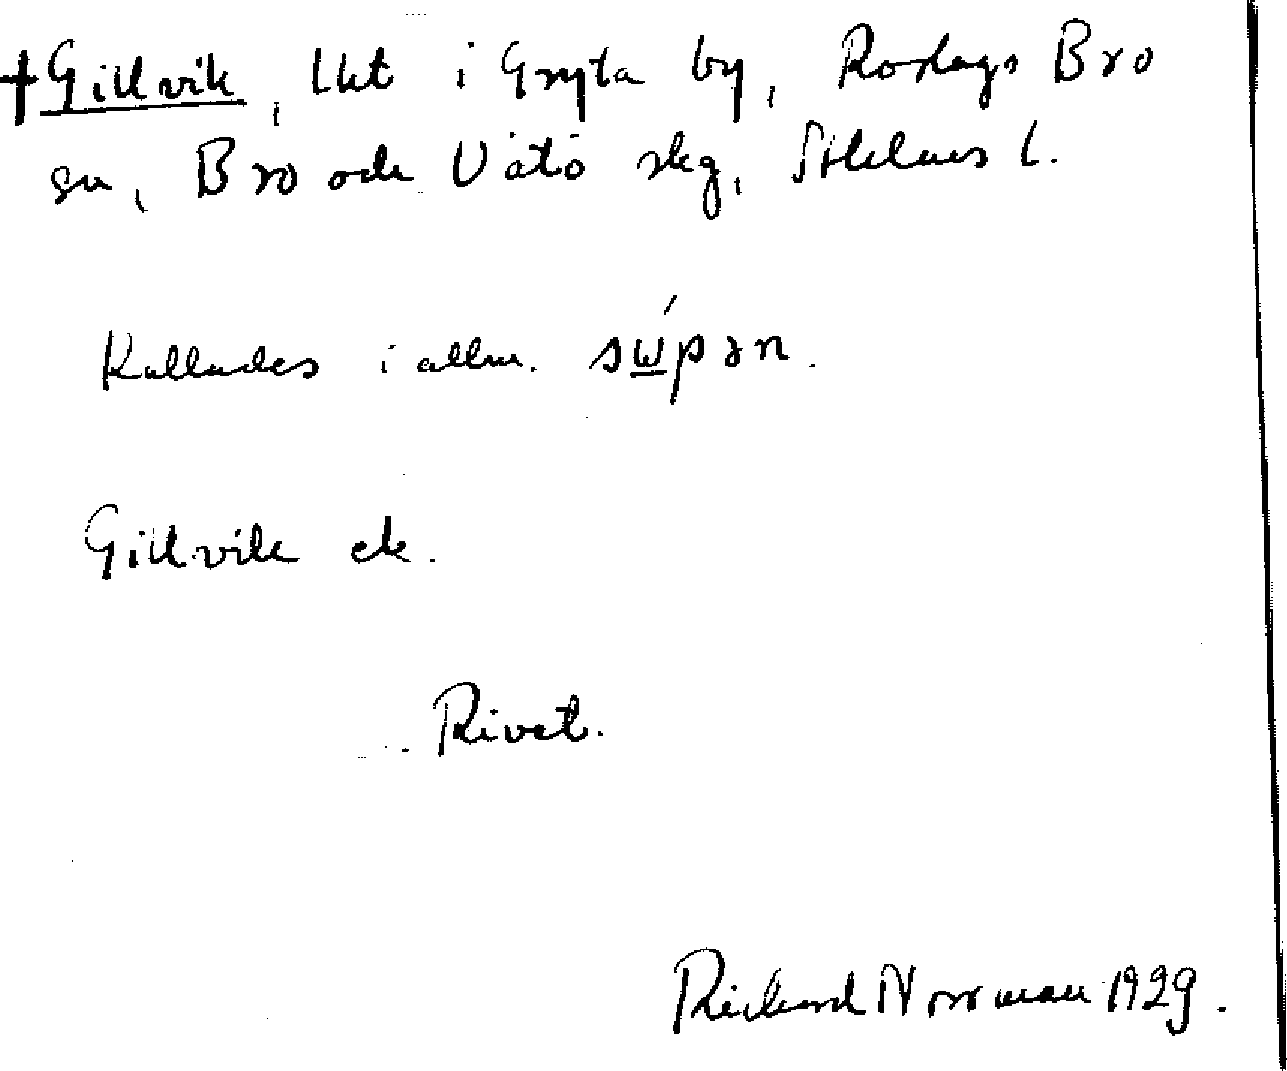 †Gillvik, lht i Gryta by, Roslags Bro
sn, Bro och Vätö skg, Sthlms l.
Kallades i allm. sẃpən.
Gillvik ek.
Rivet.
Rickard Norrman 1929.